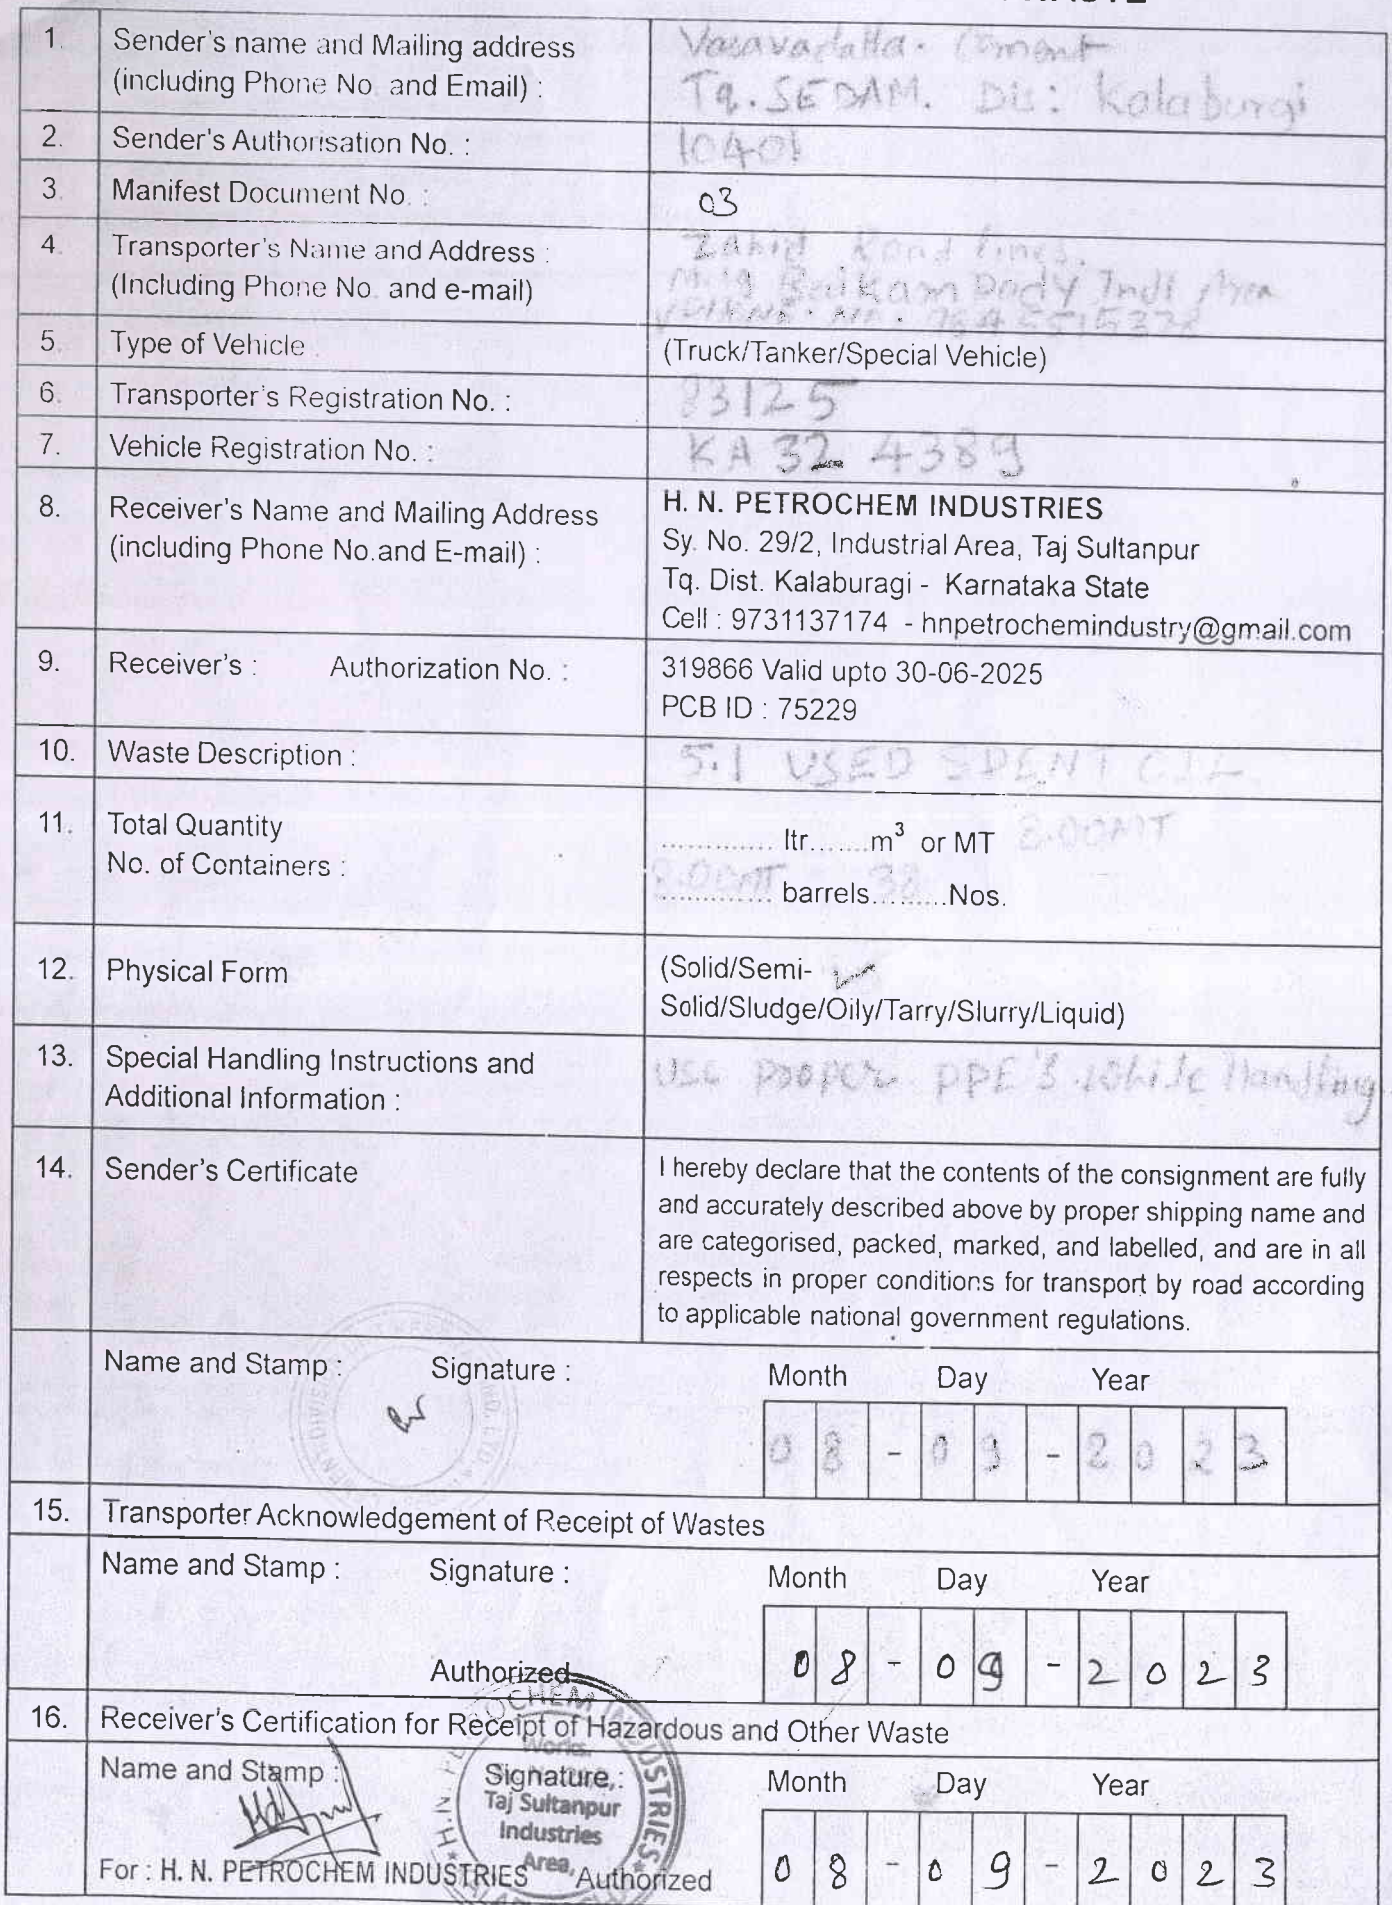 1. Sender's name and Mailing address
(including Phone No. and Email) :
Vasavadatta. Cement
Tq. SEDAM. Dis: Kalaburgi
2. Sender's Authorisation No. : 10401
3. Manifest Document No. : 03
4. Transporter's Name and Address :
(Including Phone No. and e-mail)
Zahid Road lines.
Indl Area
5. Type of Vehicle : (Truck/Tanker/Special Vehicle)
6. Transporter's Registration No. : 83125
7. Vehicle Registration No. : KA 32 4389
8. Receiver's Name and Mailing Address
(including Phone No.and E-mail) :
H. N. PETROCHEM INDUSTRIES
Sy. No. 29/2, Industrial Area, Taj Sultanpur
Tq. Dist. Kalaburagi - Karnataka State
Cell : 9731137174 - hnpetrochemindustry@gmail.com
9. Receiver's : Authorization No. :
319866 Valid upto 30-06-2025
PCB ID : 75229
10. Waste Description : 5.1 USED SPENT OIL
11. Total Quantity
No. of Containers :
............. ltr.......m³ or MT 8.00MT
8.00MT 38
............. barrels.........Nos.
12. Physical Form
(Solid/Semi-
Solid/Sludge/Oily/Tarry/Slurry/Liquid)
13. Special Handling Instructions and
Additional Information :
Use proper PPE's while Handling
14. Sender's Certificate
I hereby declare that the contents of the consignment are fully
and accurately described above by proper shipping name and
are categorised, packed, marked, and labelled, and are in all
respects in proper conditions for transport by road according
to applicable national government regulations.
Name and Stamp : Signature : Month Day Year
08-09-2023
15. Transporter Acknowledgement of Receipt of Wastes
Name and Stamp : Signature : Month Day Year
Authorized 08-09-2023
16. Receiver's Certification for Receipt of Hazardous and Other Waste
Name and Stamp : Signature : Month Day Year
H.N. PETROCHEM INDUSTRIES
Works.
Taj Sultanpur
Industries
Area,
For : H. N. PETROCHEM INDUSTRIES Authorized 08-09-2023